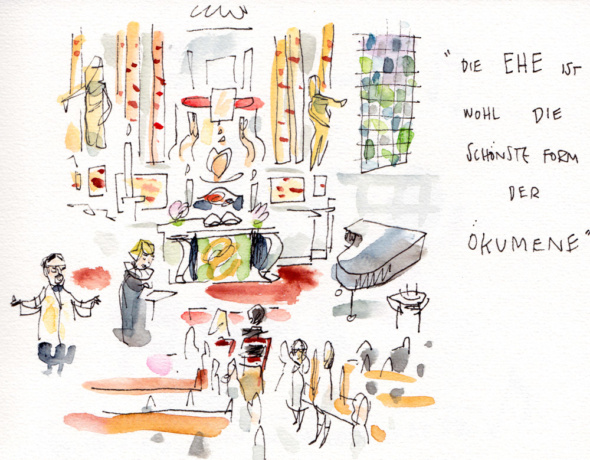 "DIE EHE IST
WOHL DIE
SCHÖNSTE FORM
DER
ÖKUMENE"